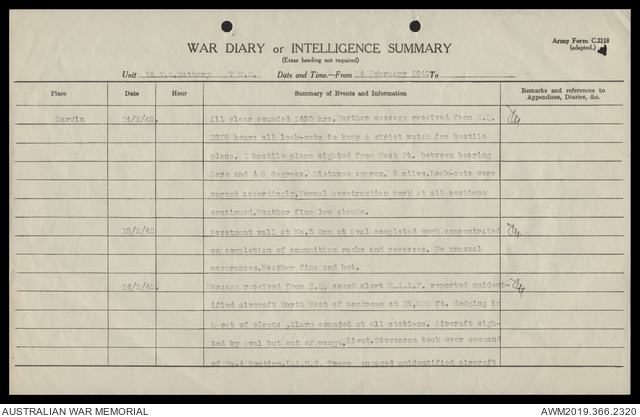 Army Form C.2118
(adapted.)
WAR DIARY or INTELLIGENCE SUMMARY
(Erase heading not required)
Unit 14 A.A.Battery 7.M.D. Date and Time.—From 14 February 1942 To
Place Date Hour Summary of Events and Information Remarks and references to Appendices, Diaries, &c.
Darwin 14/2/42. All clear sounded 1438 hrs.Further message received from H.Q.
1915 hours all look-outs to keep a strict watch for hostile
plane. 1 hostile plane sighted from East Pt. between bearing
Zero and 4 0 degrees. Distance approx. 5 miles.Look-outs were
warned accordingly.Normal construction work at all sections
continued.Weather fine low clouds.
15/2/42 Revetment wall at No.3 Gun at Oval completed work concentrated
on completion of ammunition racks and recesses. No unusual
occurances.Weather fine and hot.
16/2/42. Message received from H.Q. sound alert R.A.A.F. reported unident-
ified aircraft North West of aerdrome at 15,000 ft. dodging in
& out of clouds ,Alarm sounded at all stations. Aircraft sigh-
ted by Oval but out of range.Lieut.Stevenson took over command
of No.4 Section.L.A.M.G. Troop engaged unidentified aircraft
AUSTRALIAN WAR MEMORIAL AWM2019.366.2320